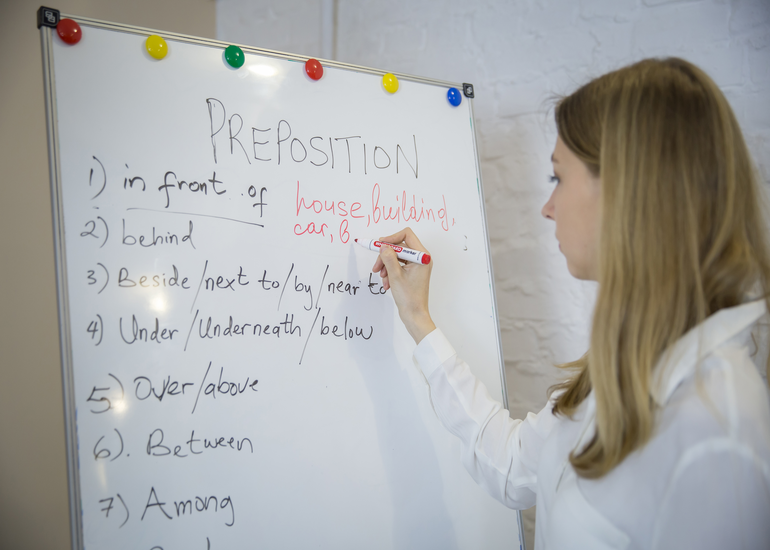 PREPOSITION
1) in front of house, building,
car, B
2) behind
3) Beside/next to/by/near to
4) Under/Underneath/below
5) Over/above
6). Between
7) Among
marker